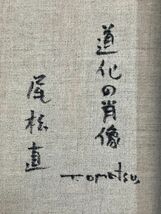 道化の肖像
尾松直
T.Omatsu